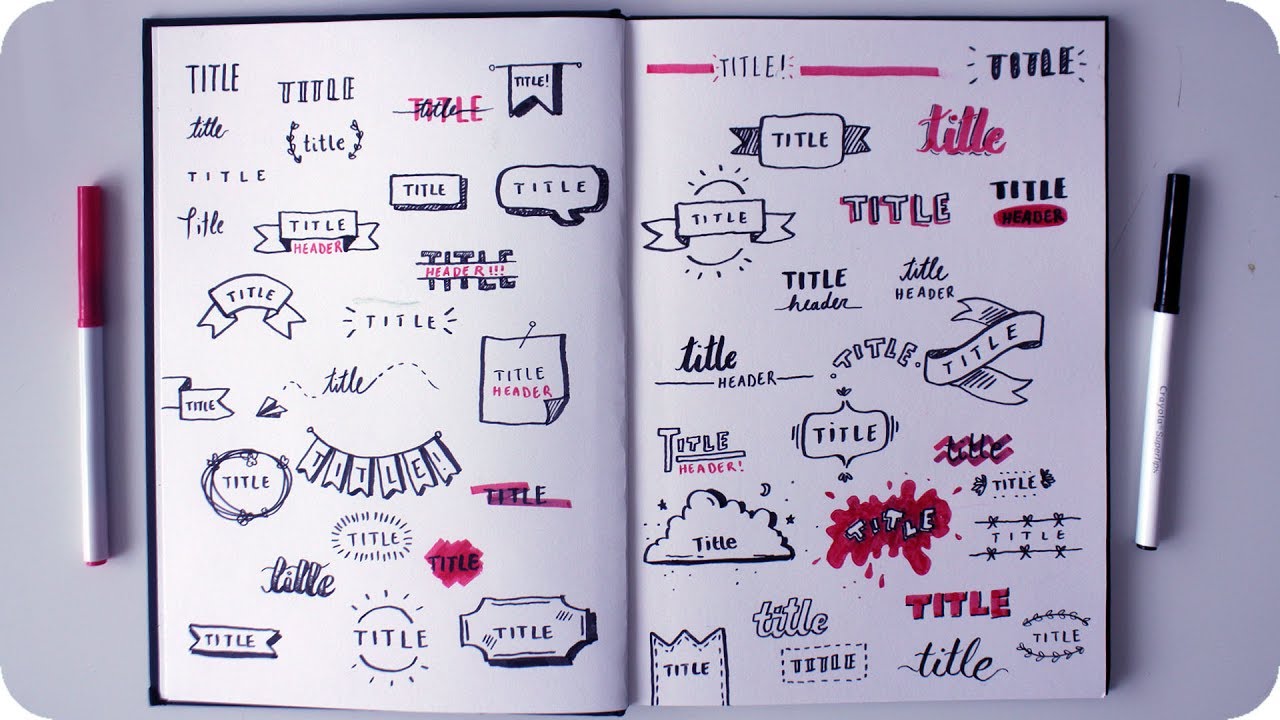 TITLE
TITLE
title
TITLE!
title
title
TITLE
TITLE
Title
TITLE
TITLE
TITLE
HEADER
TITLE
HEADER!!!
TITLE
TITLE
title
TITLE
HEADER
TITLE
TITLE!
TITLE
TITLE
TITLE
TITLE
title
TITLE
TITLE
TITLE
TITLE!
TITLE
TITLE
title
TITLE
TITLE
TITLE
HEADER
TITLE
header
title
HEADER
title
HEADER
TITLE.
TITLE
TITLE
HEADER!
TiTLE
title
TITLE
Title
TITLE
TITLE
title
TITLE
TITLE
TITLE
TITLE
title
Crayola SuperTips